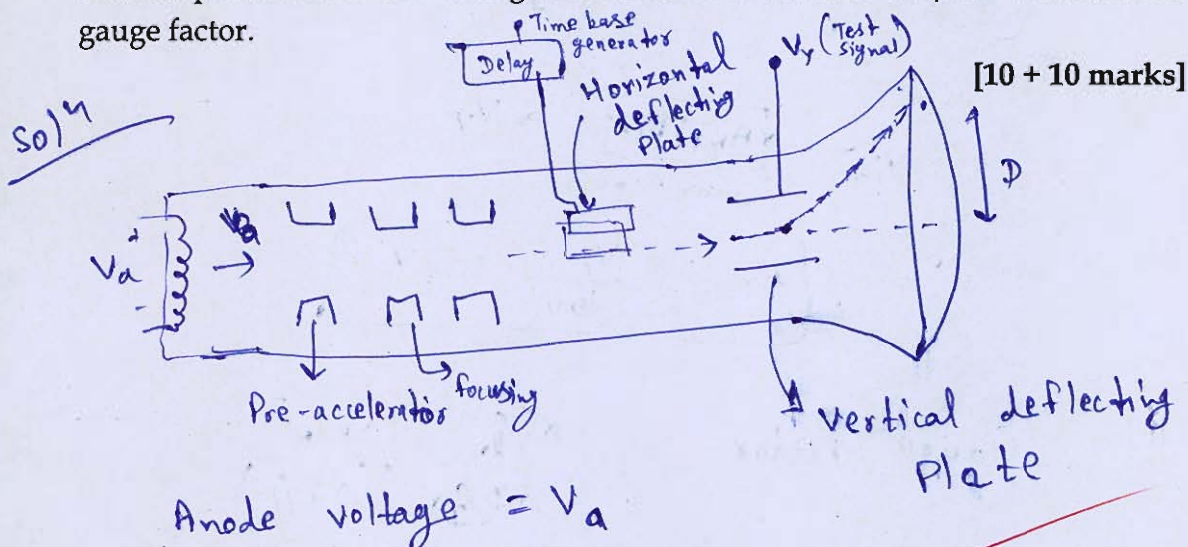 gauge factor.
[10 + 10 marks]
Soln
Time base
generator
Delay
Horizontal
deflecting
Plate
Vy (Test
signal)
D
Va
+
-
Pre-accelerator
focusing
vertical deflecting
Plate
Anode voltage = Va